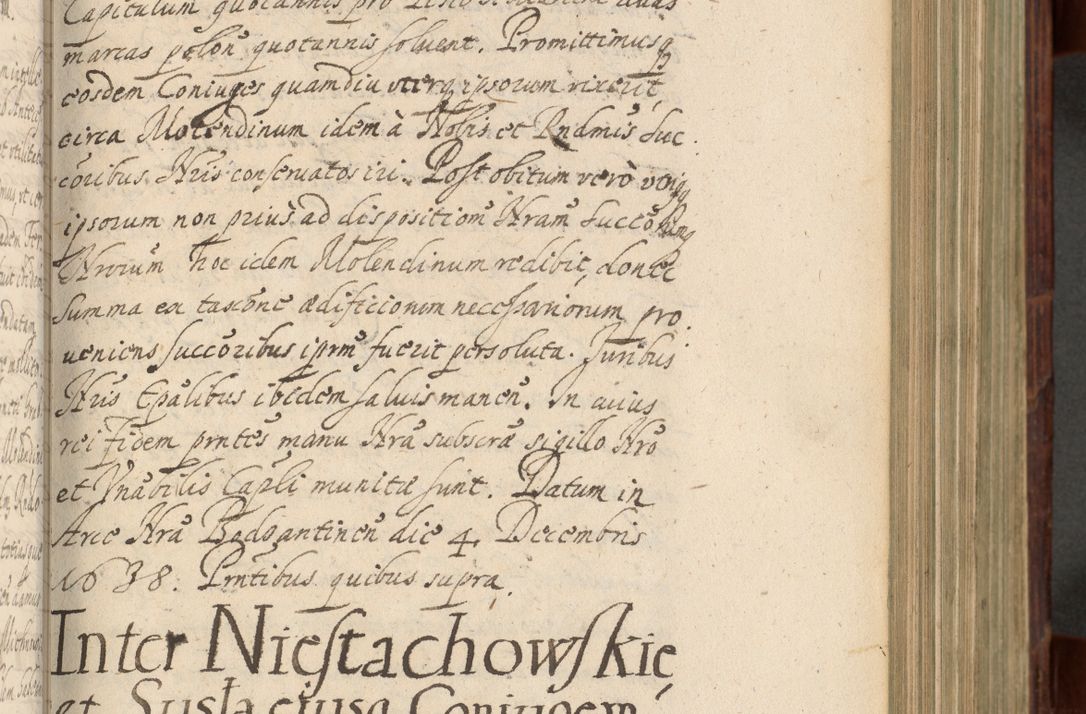 Capitulum quotannis pro
marcas polon̄ quotannis soluent. Promittimusq3
eosdem Coniuges quamdiu uterq3 ipsorum vixerit,
circa Molendinum idem à Nobis et Rndmis Suc
cōribus Nris̄ conseruatos iri. Post obitum verò
ipsorum non prius ad dispositionē Nram̄ Succōrumq3
Nrorum̄ hoc idem Molendinum redibit, donec
Summa ex taxōne ædificiorum necessariorum pro
ueniens succōribus iprm̄ fuerit persoluta. Juribus
Nris̄ Epālibus ibidem saluis manen̄. In cuius
rei fidem prntēs manu Nrā subscrā sigillo Nrō
et Vnābilis Capli munitæ sunt. Datum in
Arce Nrā Bodzantinen̄ die 4. Decembris
1638. Prntībus quibus supra.
Inter Niestachowskie
et Coniugem